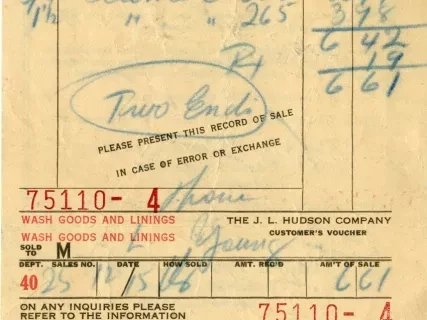 " " 265 398
Rt 6 42
19
Two Ends 6 61
PLEASE PRESENT THIS RECORD OF SALE
IN CASE OF ERROR OR EXCHANGE
75110- 4
WASH GOODS AND LININGS THE J. L. HUDSON COMPANY
WASH GOODS AND LININGS CUSTOMER'S VOUCHER
SOLD TO M Young
DEPT. SALES NO. DATE HOW SOLD AMT. REC'D AM'T OF SALE
40 25 12/15 661
ON ANY INQUIRIES PLEASE 75110- 4
REFER TO THE INFORMATION